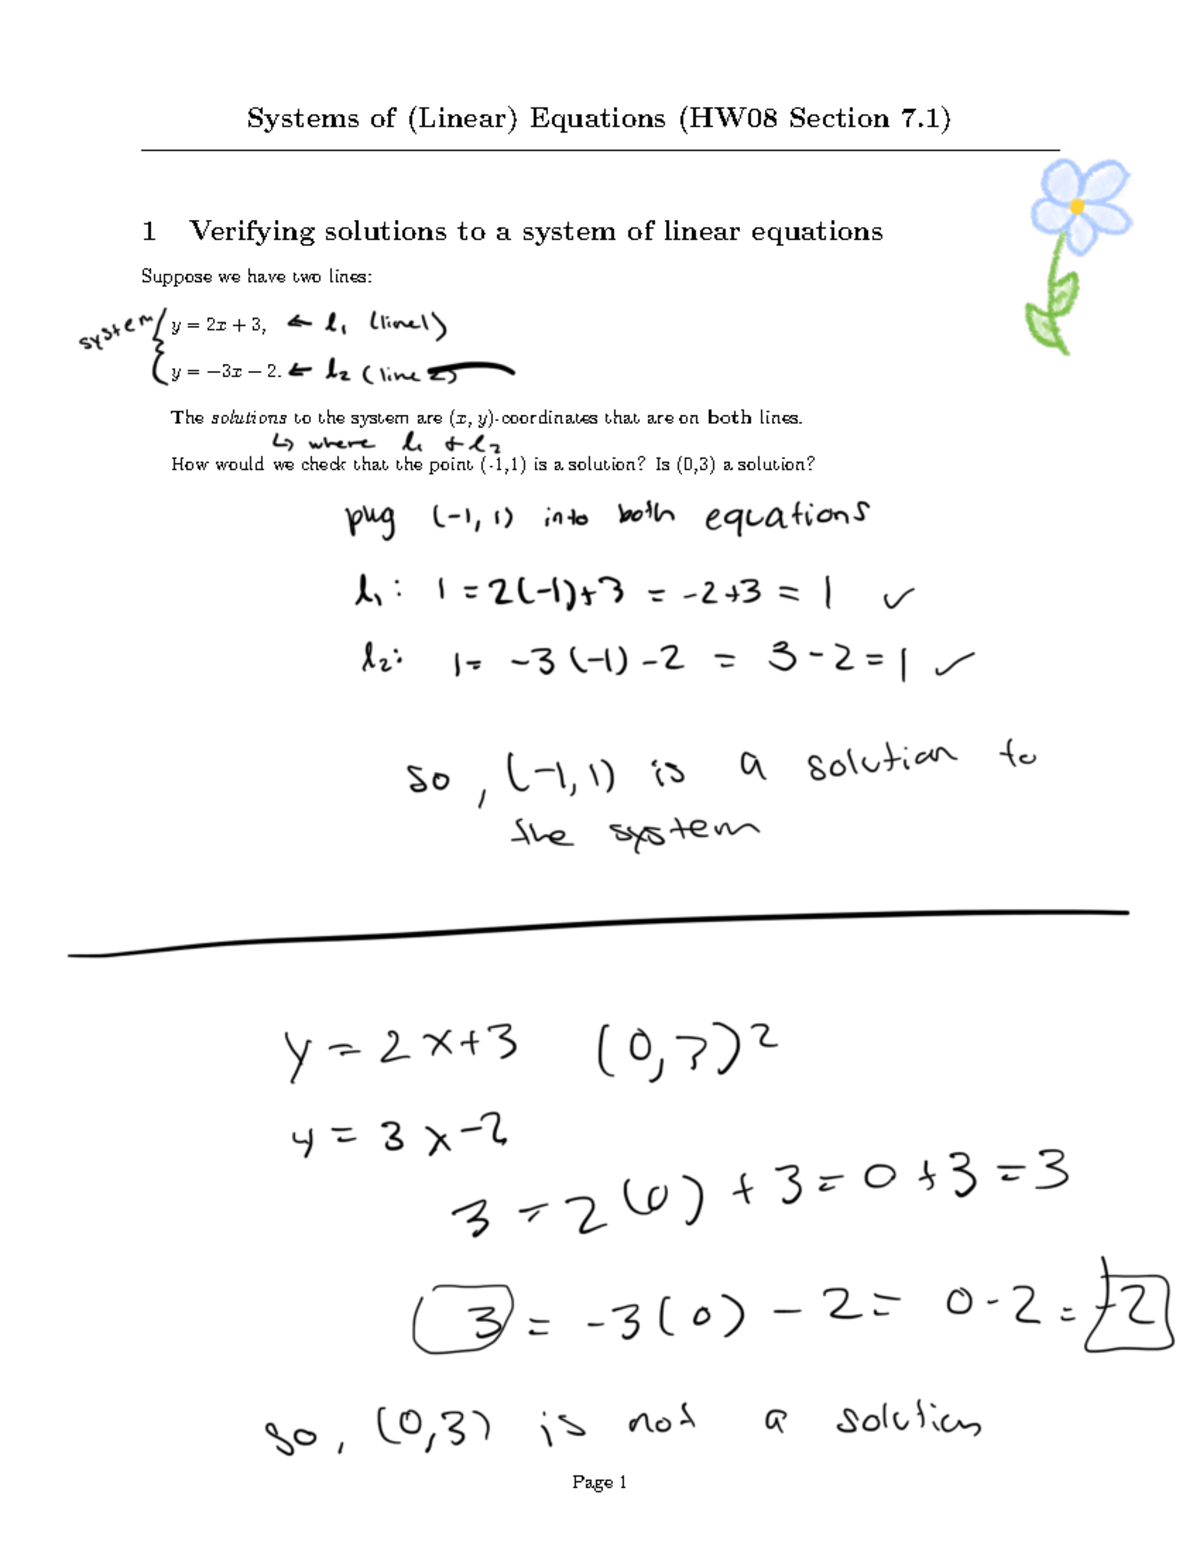 Systems of (Linear) Equations (HW08 Section 7.1)
1 Verifying solutions to a system of linear equations
Suppose we have two lines:
system { y = 2x + 3, ← l₁ (line 1)
y = −3x − 2. ← l₂ (line 2)
The solutions to the system are (x, y)-coordinates that are on both lines.
↳ where l₁ + l₂
How would we check that the point (-1,1) is a solution? Is (0,3) a solution?
pug (-1, 1) into both equations
l₁: 1 = 2(-1)+3 = -2+3 = 1 ✓
l₂: 1= -3(-1)-2 = 3-2=1 ✓
so, (-1,1) is a solution to
the system
y = 2x+3 (0,3)?
y = 3x-2
3 = 2(0) + 3 = 0+3 = 3
3 = -3(0) - 2 = 0-2 = -2
so, (0,3) is not a solution
Page 1